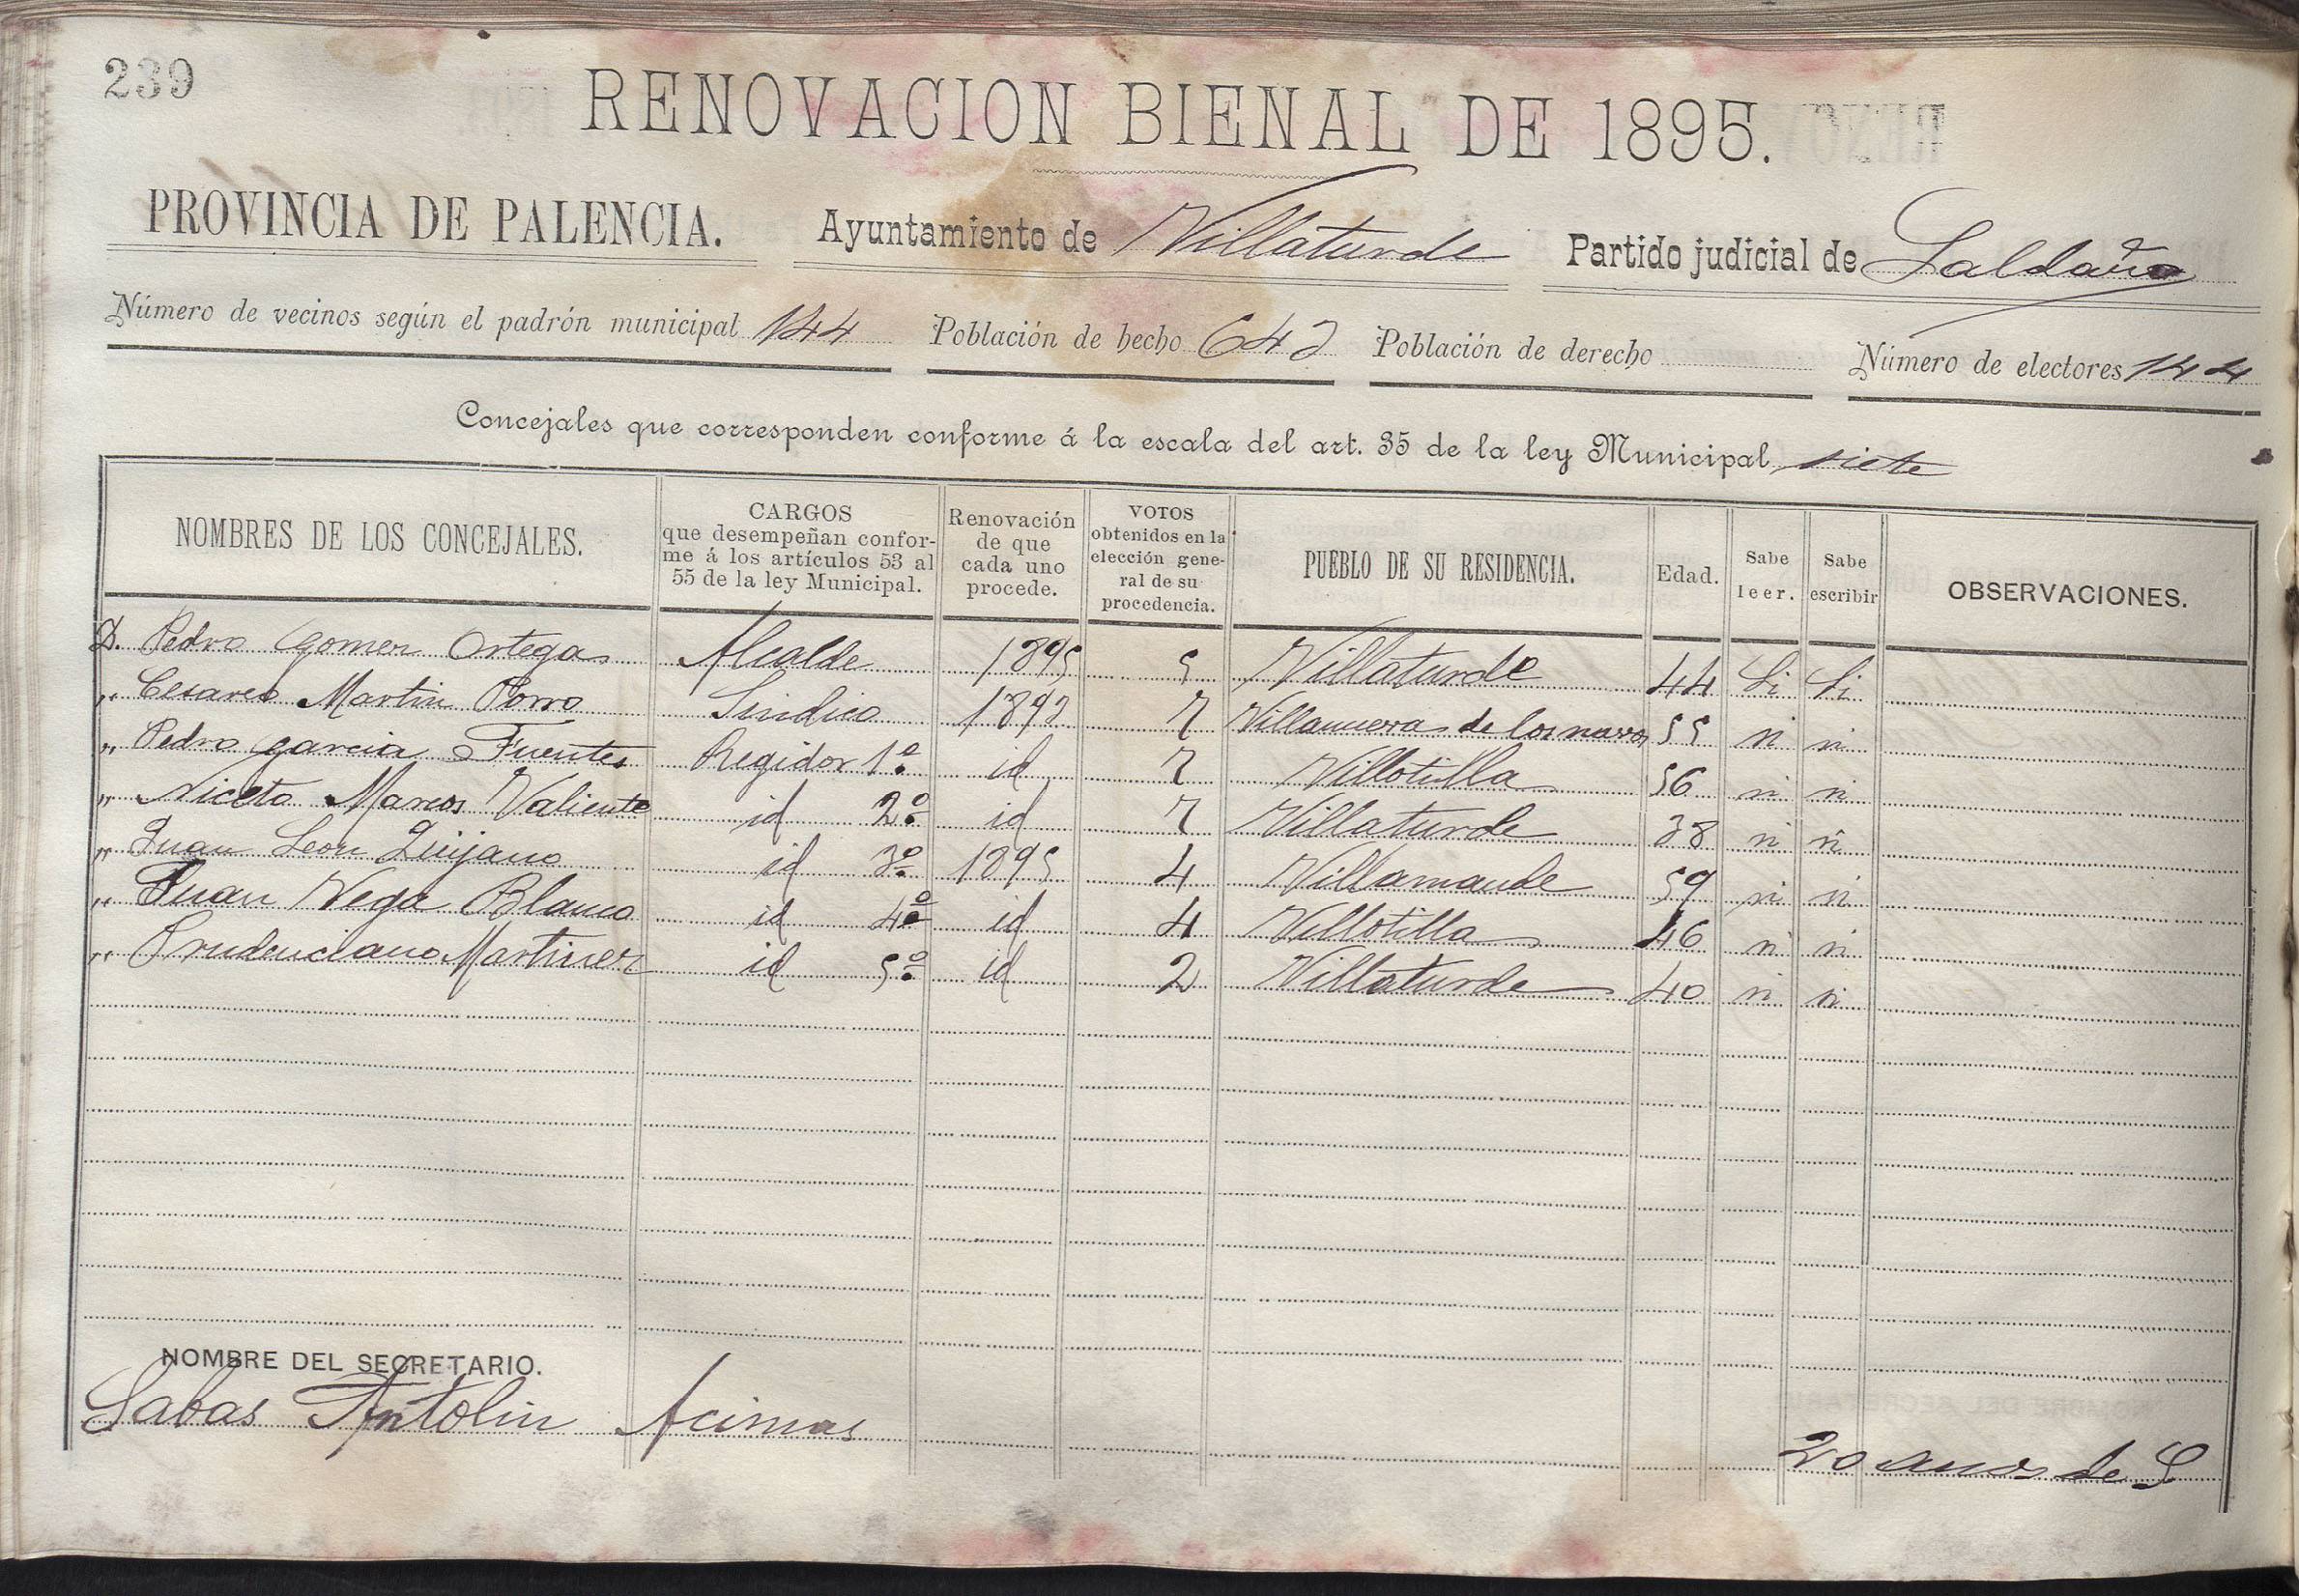 239
RENOVACION BIENAL DE 1895.
PROVINCIA DE PALENCIA. Ayuntamiento de Villaturde Partido judicial de Saldaña
Número de vecinos según el padrón municipal 144 Población de hecho 642 Población de derecho Número de electores 144
Concejales que corresponden conforme á la escala del art. 35 de la ley Municipal siete
NOMBRES DE LOS CONCEJALES. CARGOS que desempeñan conforme á los artículos 53 al 55 de la ley Municipal. Renovación de que cada uno procede. VOTOS obtenidos en la elección general de su procedencia. PUEBLO DE SU RESIDENCIA. Edad. Sabe leer. Sabe escribir OBSERVACIONES.
D. Pedro Gomez Ortega Alcalde 1895 5 Villaturde 44 Si Si
„ Cesareo Martin Porro Sindico 1892 7 Villanueva de los navos 55 si si
„ Pedro Garcia Fuentes Regidor 1º id 7 Villotilla 56 si si
„ Niceto Marcos Valiente id 2º id 7 Villaturde 38 si si
„ Juan Leon Quijano id 3º 1895 4 Villamande 59 si si
„ Juan Vega Blanco id 4º id 4 Villotilla 46 si si
„ Prudenciano Martinez id 5º id 2 Villaturde 40 si si
NOMBRE DEL SECRETARIO.
Sabas Antolin Acimas
20 anos de S